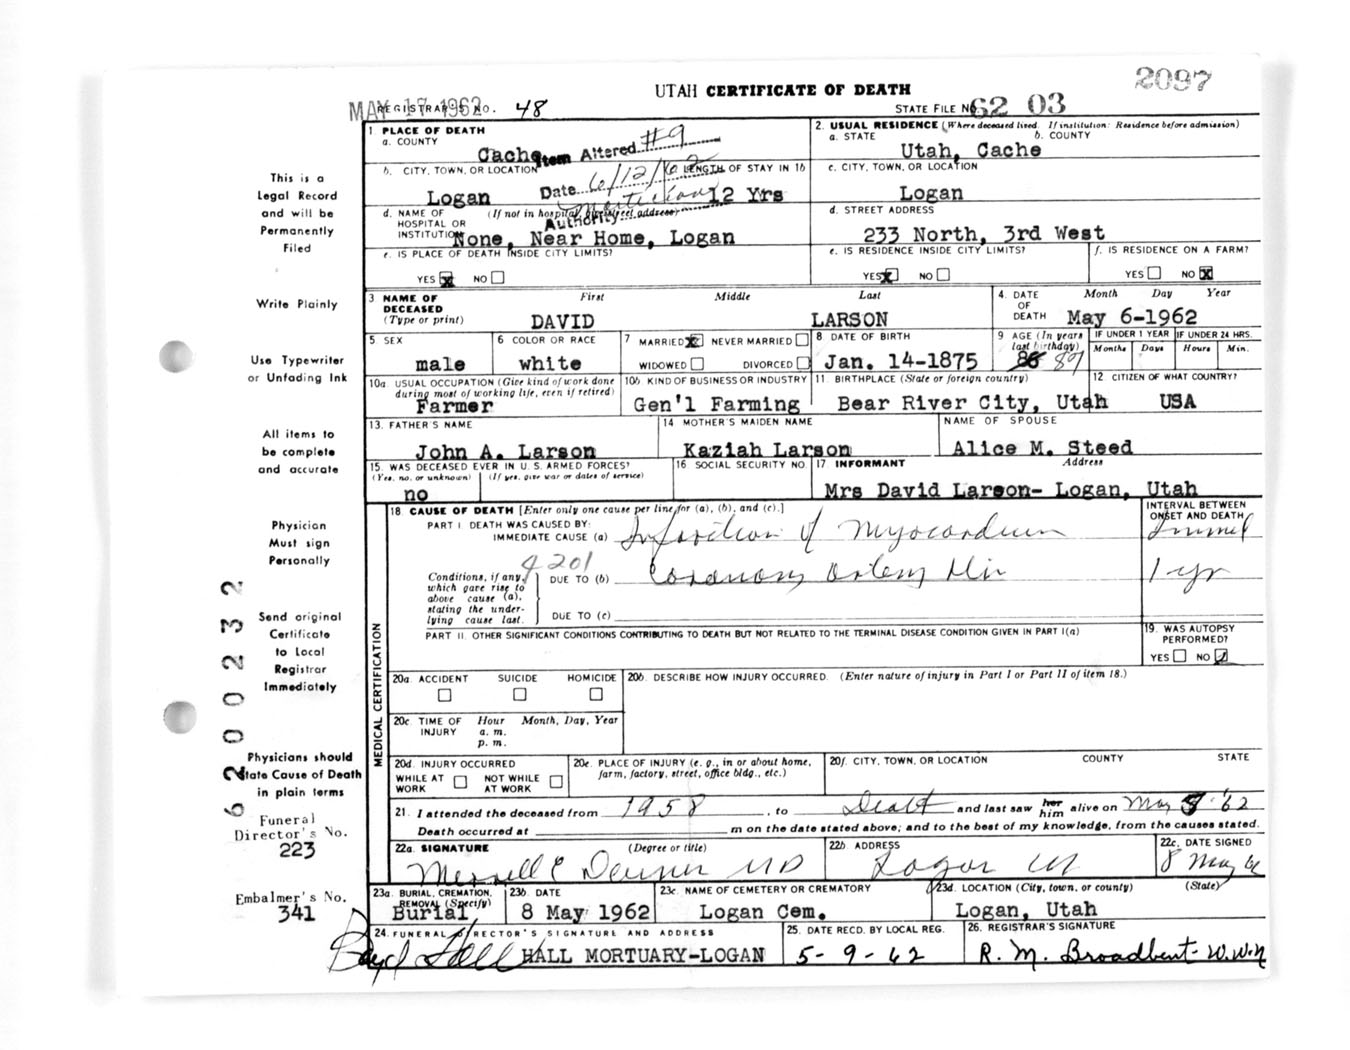 2097
UTAH CERTIFICATE OF DEATH
MAY 17 1962
REGISTRAR'S NO. 48
STATE FILE NO. 62 03
1. PLACE OF DEATH
a. COUNTY
Cache
Item Altered #9
2. USUAL RESIDENCE (Where deceased lived. If institution: Residence before admission)
a. STATE b. COUNTY
Utah, Cache
b. CITY, TOWN, OR LOCATION
Logan
Date 6/12/62
LENGTH OF STAY IN 1b
12 Yrs
c. CITY, TOWN, OR LOCATION
Logan
d. NAME OF HOSPITAL OR INSTITUTION (If not in hospital, give street address)
Authority Mortician
None, Near Home, Logan
d. STREET ADDRESS
233 North, 3rd West
e. IS PLACE OF DEATH INSIDE CITY LIMITS?
YES X NO
e. IS RESIDENCE INSIDE CITY LIMITS?
YES X NO
f. IS RESIDENCE ON A FARM?
YES NO X
3 NAME OF DECEASED (Type or print)
First Middle Last
DAVID LARSON
4. DATE OF DEATH
Month Day Year
May 6-1962
5 SEX
male
6 COLOR OR RACE
white
7 MARRIED X NEVER MARRIED
WIDOWED DIVORCED
8 DATE OF BIRTH
Jan. 14-1875
9 AGE (In years last birthday)
86 87
IF UNDER 1 YEAR
Months Days
IF UNDER 24 HRS.
Hours Min.
10a. USUAL OCCUPATION (Give kind of work done during most of working life, even if retired)
Farmer
10b KIND OF BUSINESS OR INDUSTRY
Gen'l Farming
11. BIRTHPLACE (State or foreign country)
Bear River City, Utah
12 CITIZEN OF WHAT COUNTRY?
USA
13. FATHER'S NAME
John A. Larson
14 MOTHER'S MAIDEN NAME
Kaziah Larson
NAME OF SPOUSE
Alice M. Steed
15. WAS DECEASED EVER IN U.S. ARMED FORCES?
(Yes, no, or unknown) (If yes, give war or dates of service)
no
16 SOCIAL SECURITY NO.
17 INFORMANT Address
Mrs David Larson- Logan, Utah
18 CAUSE OF DEATH [Enter only one cause per line for (a), (b), and (c).]
INTERVAL BETWEEN ONSET AND DEATH
PART I. DEATH WAS CAUSED BY:
IMMEDIATE CAUSE (a) Infarction of Myocardium
4201
Conditions, if any, which gave rise to above cause (a), stating the underlying cause last.
DUE TO (b) Coronary artery Dis
1 yr
DUE TO (c)
PART II. OTHER SIGNIFICANT CONDITIONS CONTRIBUTING TO DEATH BUT NOT RELATED TO THE TERMINAL DISEASE CONDITION GIVEN IN PART I(a)
19. WAS AUTOPSY PERFORMED?
YES NO
MEDICAL CERTIFICATION
20a. ACCIDENT SUICIDE HOMICIDE
20b. DESCRIBE HOW INJURY OCCURRED. (Enter nature of injury in Part I or Part II of item 18.)
20c. TIME OF INJURY Hour Month, Day, Year
a. m.
p. m.
20d. INJURY OCCURRED
WHILE AT WORK NOT WHILE AT WORK
20e. PLACE OF INJURY (e. g., in or about home, farm, factory, street, office bldg., etc.)
20f. CITY, TOWN, OR LOCATION COUNTY STATE
21. I attended the deceased from 1958, to Death and last saw her him alive on May 5 '62
Death occurred at m on the date stated above; and to the best of my knowledge, from the causes stated.
22a. SIGNATURE (Degree or title)
MD
22b. ADDRESS
Logan Ut
22c. DATE SIGNED
8 May 62
23a. BURIAL, CREMATION, REMOVAL (Specify)
Burial
23b. DATE
8 May 1962
23c. NAME OF CEMETERY OR CREMATORY
Logan Cem.
23d. LOCATION (City, town, or county) (State)
Logan, Utah
24. FUNERAL DIRECTOR'S SIGNATURE AND ADDRESS
Boyd Hall HALL MORTUARY-LOGAN
25. DATE RECD. BY LOCAL REG.
5-9-62
26. REGISTRAR'S SIGNATURE
R. M. Broadbent- W.W.N
This is a
Legal Record
and will be
Permanently
Filed
Write Plainly
Use Typewriter
or Unfading Ink
All items to
be complete
and accurate
Physician
Must sign
Personally
Send original
Certificate
to Local
Registrar
Immediately
Physicians should
State Cause of Death
in plain terms
Funeral
Director's No.
223
Embalmer's No.
341
62000232